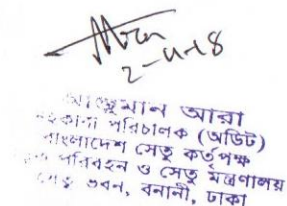 ২-৭-১৪
আঞ্জুমান আরা
সহকারী পরিচালক (অডিট)
বাংলাদেশ সেতু কর্তৃপক্ষ
পরিবহন ও সেতু মন্ত্রণালয়
সেতু ভবন, বনানী, ঢাকা